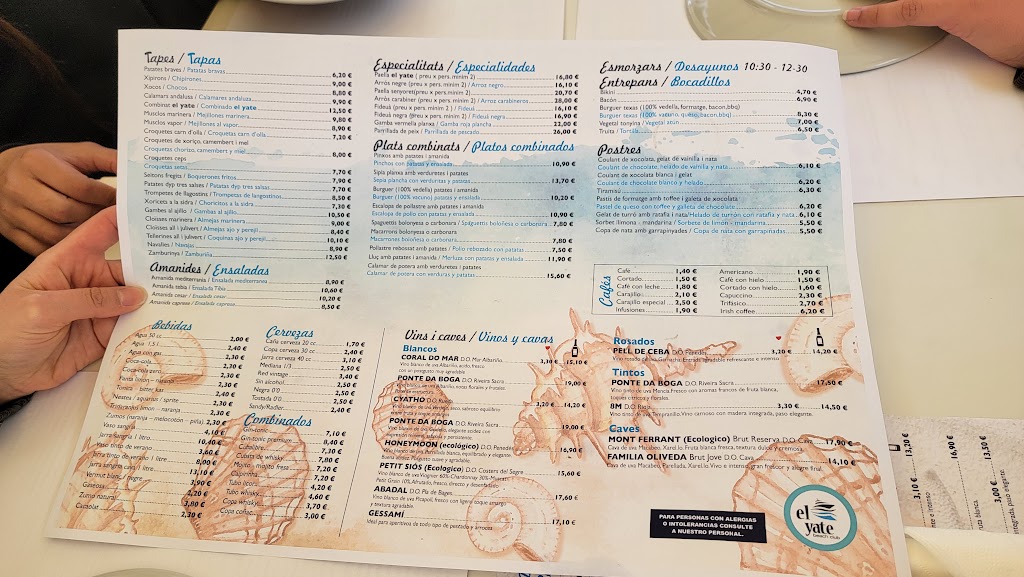 Tapes / Tapas
Patates braves / Patatas bravas 6,20 €
Xipirons / Chipirones 9,00 €
Xocos / Chocos 8,80 €
Calamars andalusa / Calamares andaluza 9,90 €
Combinat el yate / Combinado el yate 12,50 €
Musclos marinera / Mejillones marinera 9,80 €
Musclos vapor / Mejillones al vapor 8,90 €
Croquetes carn d'olla / Croquetas carn d'olla 7,20 €
Croquetes de xoriço, camembert i mel
Croquetas chorizo, camembert y miel 8,00 €
Croquetes ceps
Croquetas setas 7,70 €
Seitons fregits / Boquerones fritos 7,90 €
Patates dyp tres salses / Patatas dyp tres salsas 7,70 €
Trompetes de llagostins / Trompetas de langostinos 8,50 €
Xoricets a la sidra / Choricitos a la sidra 7,30 €
Gambes al ajillo / Gambas al ajillo 10,50 €
Cloisses marinera / Almejas marinera 9,00 €
Cloisses all i julivert / Almejas ajo y perejil 8,40 €
Tellerines all i julivert / Coquinas ajo y perejil 10,10 €
Navalles / Navajas 8,90 €
Zamburinya / Zamburiña 12,50 €
Amanides / Ensaladas
Amanida mediterrania / Ensalada mediterranea 8,90 €
Amanida tebia / Ensalada Tibia 10,60 €
Amanida cesar / Ensalada cesar 10,20 €
Amanida caprese / Ensalada caprese 8,50 €
Especialitats / Especialidades
Paella el yate ( preu x pers. minim 2) 16,80 €
Arròs negre (preu x pers. minim 2) / Arroz negro 16,10 €
Paella senyoret(preu x pers. minim 2) 20,70 €
Arròs carabiner (preu x pers. minim 2) / Arroz carabineros 28,00 €
Fideuà (preu x pers. minim 2 ) / Fideuá 16,10 €
Fideuà negra (preu x pers. minim 2) / Fideuá negra 16,90 €
Gamba vermella planxa / Gamba roja plancha 22,00 €
Parrillada de peix / Parrillada de pescado 26,00 €
Plats combinats / Platos combinados
Pinxos amb patates i amanida
Pinchos con patatas y ensalada 10,90 €
Sipia planxa amb verduretes i patates
Sepia plancha con verduritas y patatas 13,70 €
Burguer (100% vedella) patates i amanida
Burguer (100% vacuno) patatas y ensalada 10,20 €
Escalopa de pollastre amb patates i amanida
Escalopa de pollo con patatas y ensalada 10,90 €
Spaguettis bolonyesa o carbonara / Spaguettis boloñesa o carbonara 7,80 €
Macarrons bolonyesa o carbonara
Macarrones boloñesa o carbonara 7,80 €
Pollastre rebossat amb patates / Pollo rebozado con patatas 7,50 €
Lluç amb patates i amanida / Merluza con patatas y ensalada 11,90 €
Calamar de potera amb verduretes i patates
Calamar de potera con verduras y patatas 15,60 €
Esmorzars / Desayunos 10:30 - 12-30
Entrepans / Bocadillos
Bikini 4,70 €
Bacón 6,90 €
Burguer texas (100% vedella, formatge, bacon,bbq)
Burguer texas (100% vacuno, queso,bacon,bbq) 8,30 €
Vegetal tonyina / Vegetal atún 7,00 €
Truita / Tortilla 6,50 €
Postres
Coulant de xocolata, gelat de vainilla i nata
Coulant de chocolate, helado de vainilla y nata 6,10 €
Coulant de xocolata blanca i gelat
Coulant de chocolate blanco y helado 6,20 €
Tiramisú 6,30 €
Pastís de formatge amb toffee i galeta de xocolata
Pastel de queso con toffee y galleta de chocolate 6,20 €
Gelat de turró amb ratafia i nata/Helado de turrón con ratafía y nata 6,10 €
Sorbet llimona - mandarina / Sorbete de limón - mandarina 5,50 €
Copa de nata amb garrapinyades / Copa de nata con garrapiñadas 5,50 €
Cafés
Café 1,40 €
Cortado 1,50 €
Café con leche 1,80 €
Carajillo 2,10 €
Carajillo especial 2,50 €
Infusiones 1,90 €
Americano 1,90 €
Café con hielo 1,50 €
Cortado con hielo 1,60 €
Capuccino 2,30 €
Trifásico 2,70 €
Irish coffee 6,20 €
Bebidas
Agua 50 cc
Agua 1,5 l
Agua con gas
Coca-cola
Coca-cola zero
Fanta limón - naranja
Tónica - bitter kas
Nestea / aquarius / sprite
Zumos (naranja - melocotón - piña)
Vaso sangría
Jarra Sangría 1 litro
Vaso tinto de verano
Jarra tinto de verano 1 litro
Jarra sangría cava 1 litro
Vermut blanc / negre
Gaseosa
Zumo natural
Cacaolat 2,30 €
Cervezas
Caña cerveza 20 cc 1,70 €
Copa cerveza 30 cc 2,40 €
Jarra cerveza 40 cc 3,10 €
Mediana 1/3 2,50 €
Red vintage 3,40 €
Sin alcohol 2,50 €
Negra 0'0 2,50 €
Tostada 0'0 2,50 €
Sandy/Radler 2,40 €
Combinados
Gin-tonic 7,10 €
Gin-tonic premium 8,40 €
Cubata 7,30 €
Cubata de whisky 7,80 €
Mojito - mojito fresa 7,20 €
Caipirinha 7,20 €
Tubo licor 4,20 €
Tubo whisky 4,60 €
Copa whisky 3,70 €
Copa coñac 3,00 €
Vins i caves / Vinos y cavas
Blancos
CORAL DO MAR D.O. Mar Albariño 3,30 € 15,10 €
Vino blanco de uva Albariño, ácido, fresco
con un posgusto muy agradable
PONTE DA BOGA D.O. Riveira Sacra 19,00 €
CYATHO D.O. Rueda 3,20 € 14,20 €
PONTE DA BOGA D.O. Riveira Sacra 19,00 €
HONEYMOON (ecológico) D.O. Penedés 16,90 €
PETIT SIÓS (Ecologico) D.O. Costers del Segre 15,60 €
Vino blanco de uva Viognier 60%-Chardonnay 30%-Muscat
Petit Grain 10%.Afrutado, fresco, directo y descarado
ABADAL D.O. Pla de Bages 17,60 €
Vino blanco de uva Picapoll, fresco con ligero toque amargo
y textura agradable.
GESSAMÍ 17,10 €
Ideal para aperitivos de todo tipo de pescado y arroces
Rosados
PELL DE CEBA D.O. Penedés 3,20 € 14,20 €
Vino rosado de uva Garnacha. Entrada agradable refrescante e intenso
Tintos
PONTE DA BOGA D.O. Riveira Sacra 17,50 €
Vino tinto de uva Mencía.Fresco con aromas frescos de fruta blanca,
toques cítricos y florales.
8M D.O. Rioja 3,30 € 14,50 €
Vino tinto de uva Tempranillo.Vino carnoso con madera integrada, paso elegante.
Caves
MONT FERRANT (Ecologico) Brut Reserva D.O. Cava 17,90 €
Cava de uva Macabeo, Xarel.lo Fruta blanca fresca, textura dulce y cremosa.
FAMILIA OLIVEDA Brut Jove D.O. Cava 14,10 €
Cava de uva Macabeo, Parellada, Xarel.lo.Vivo e intenso, gran frescor y alegre final.
PARA PERSONAS CON ALERGIAS
O INTOLERANCIAS CONSULTE
A NUESTRO PERSONAL.
el
yate
beach club